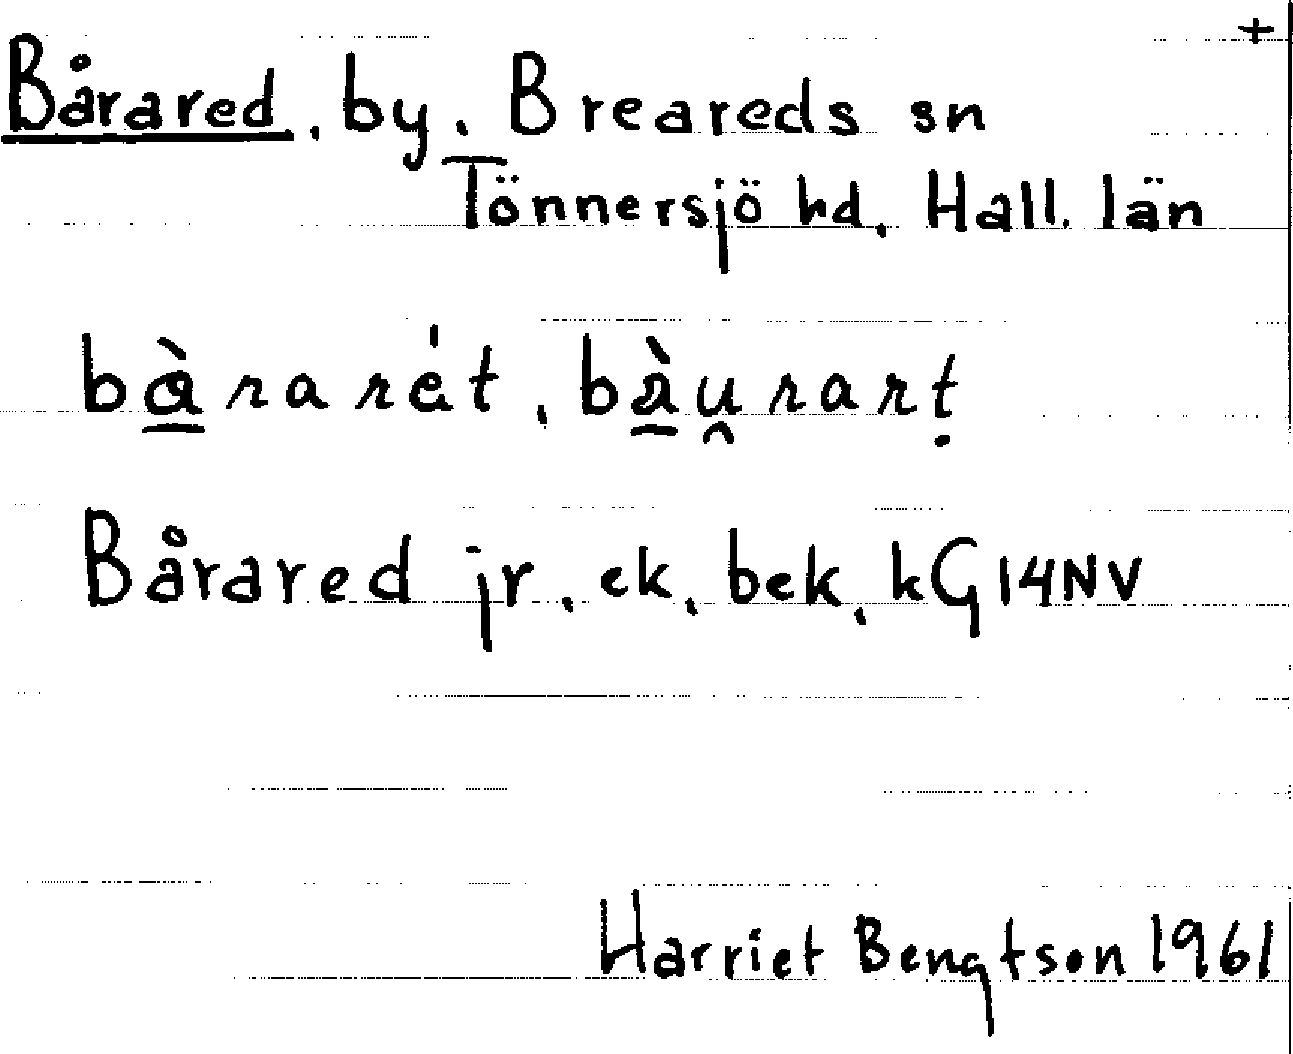 +
Bårared, by, Breareds sn
Tönnersjö hd, Hall. län
bà̱raré̇t, bà̱u̯rarṭ
Bårared jr, ek, bek, kG14NV
Harriet Bengtson 1961